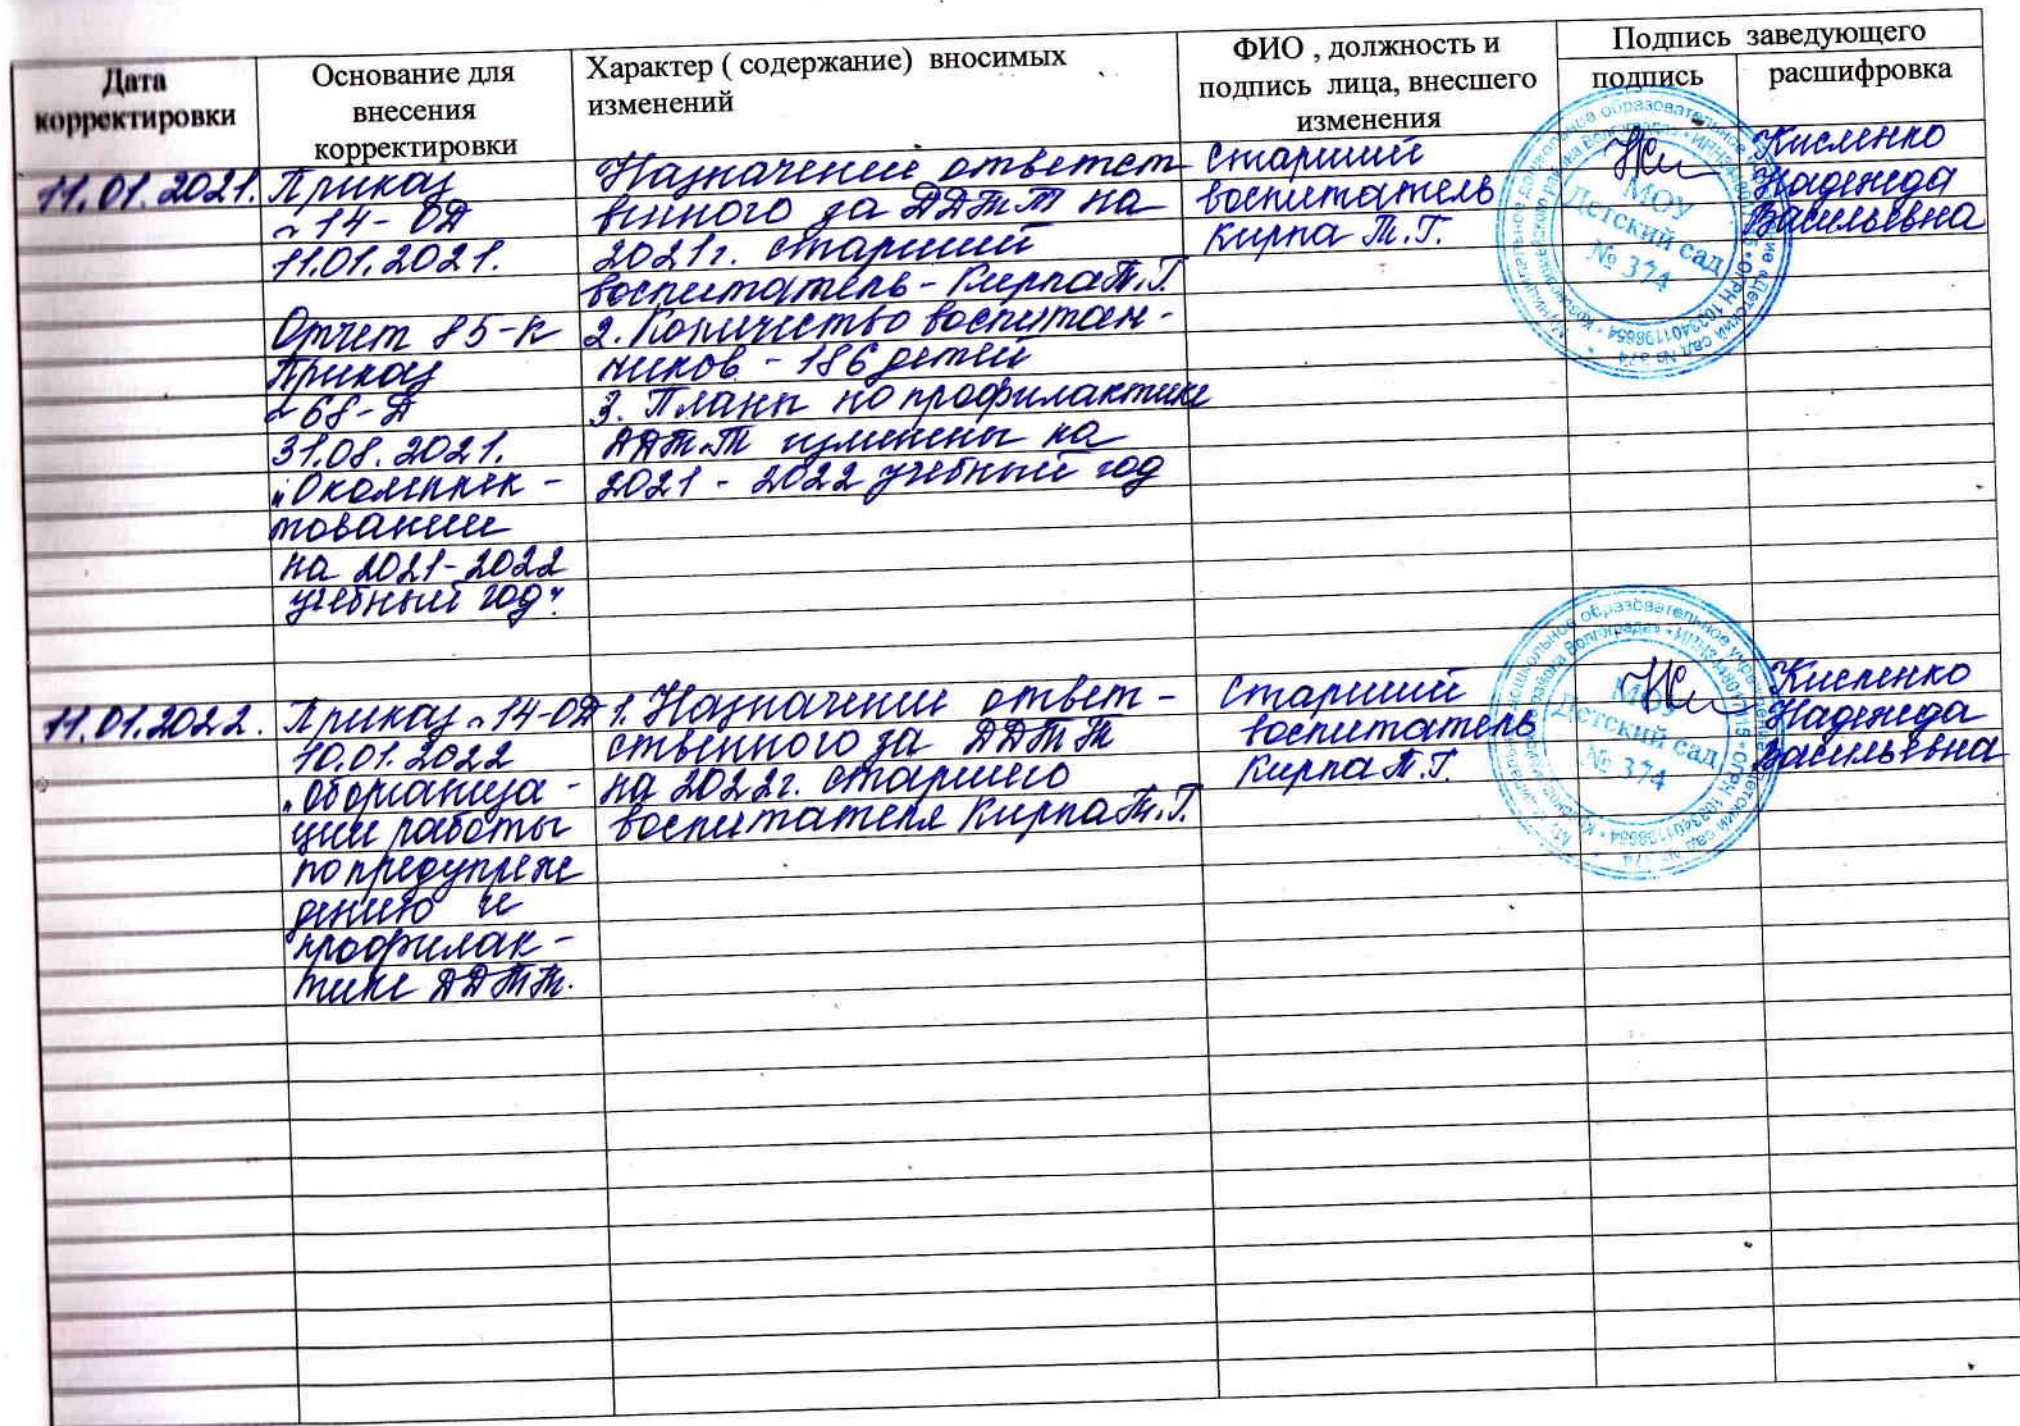 Дата
корректировки
Основание для
внесения
корректировки
Характер ( содержание) вносимых
изменений
ФИО , должность и
подпись лица, внесшего
изменения
Подпись заведующего
подпись
расшифровка
11.01.2021.
Приказ
~ 14 - ОД
11.01.2021.
Отчет 85-К
Приказ
~ 68-Д
31.08.2021.
"О комплек -
товании
на 2021-2022
учебный год".
Назначении ответст
венного за ДДТТ на
2021г. старший
воспитатель - Кирпа Т.Г.
2. Количество воспитан -
ников - 186 детей
3. Планы по профилактике
ДДТ.Т изменены на
2021 - 2022 учебный год
Старший
воспитатель
Кирпа Т.Г.
МОУ
Детский сад
№ 374
Кисленко
Надежда
Васильевна
11.01.2022.
Приказ ~ 14-ОД
10.01.2022
"Об организа -
ции работы
по предупреж
дению и
профилак -
тике ДДТТ.
1. Назначении ответ -
ственного за ДДТТ
на 2022г. старшего
воспитателя Кирпа Т.Г.
Старший
воспитатель
Кирпа Т.Г.
МОУ
Детский сад
№ 374
Кисленко
Надежда
Васильевна